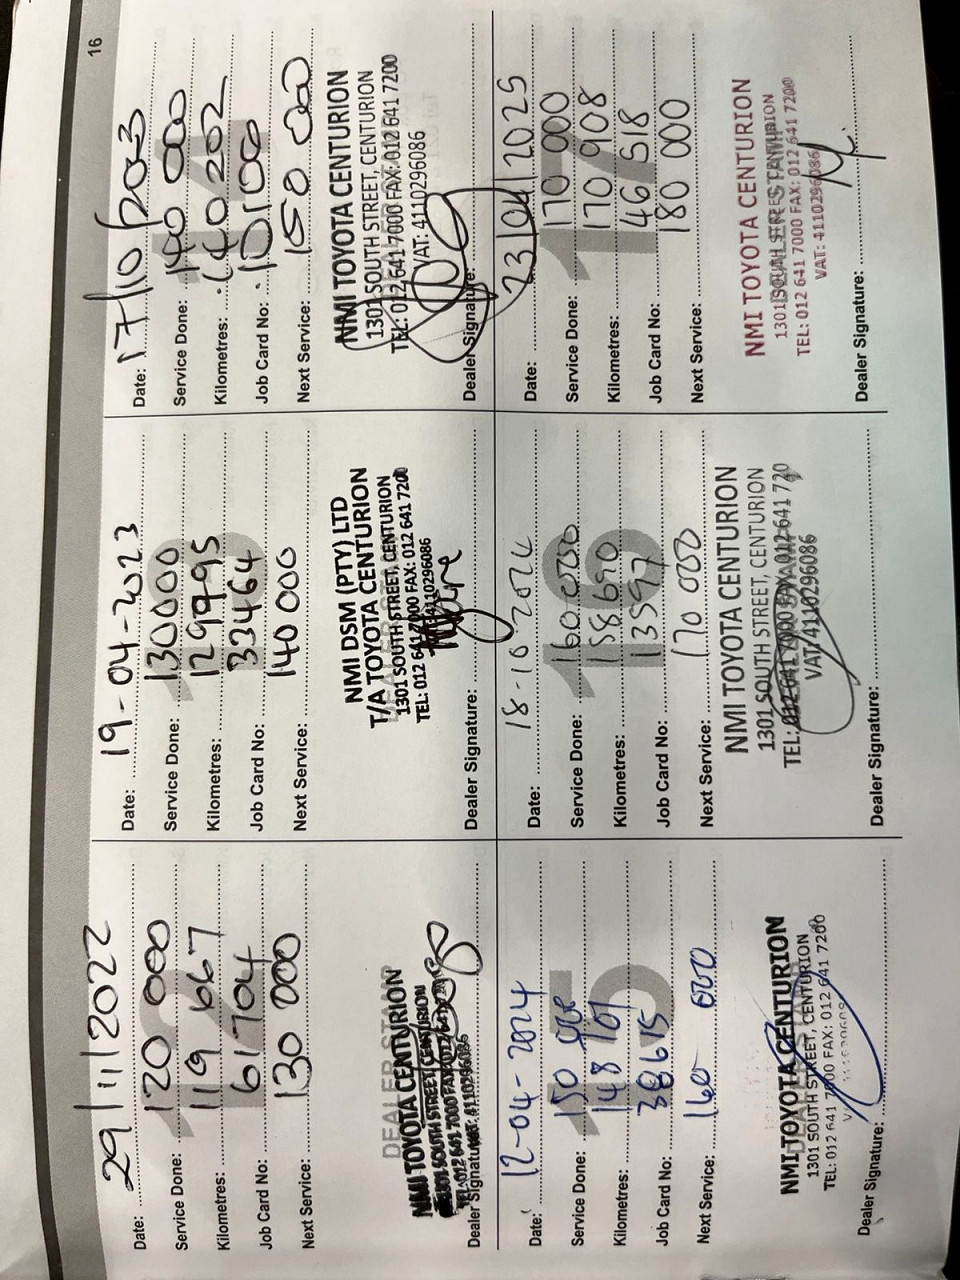 16
Date: 29/11/2022
Service Done: 120 000
Kilometres: 119 667
Job Card No: 61704
Next Service: 130 000
12
DEALER STAMP
NMI TOYOTA CENTURION
1301 SOUTH STREET, CENTURION
TEL: 012 641 7000 FAX: 012 641
VAT: 4110296086
Dealer Signature:
Date: 19-04-2023
Service Done: 130000
Kilometres: 129995
Job Card No: 33464
Next Service: 140 000
13
NMI DSM (PTY) LTD
T/A TOYOTA CENTURION
1301 SOUTH STREET, CENTURION
TEL: 012 641 7000 FAX: 012 641 7200
4110296086
Dealer Signature:
Date: 17/10/2023
Service Done: 140 000
Kilometres: 140 202
Job Card No: 10100
Next Service: 150 000
14
NMI TOYOTA CENTURION
1301 SOUTH STREET, CENTURION
TEL: 012 641 7000 FAX: 012 641 7200
VAT: 4110296086
Dealer Signature:
Date: 12-04-2024
Service Done: 150 000
Kilometres: 148 101
Job Card No: 38615
Next Service: 160 000
15
DEALER STAMP
NMI TOYOTA CENTURION
1301 SOUTH STREET, CENTURION
TEL: 012 641 7000 FAX: 012 641 7200
Dealer Signature:
Date: 18-10-2024
Service Done: 160 000
Kilometres: 158 690
Job Card No: 13597
Next Service: 170 000
16
NMI TOYOTA CENTURION
1301 SOUTH STREET, CENTURION
TEL: 012 641 7000 FAX: 012 641 720
VAT: 4110296086
Dealer Signature:
Date: 23/04/2025
Service Done: 170 000
Kilometres: 170 908
Job Card No: 46518
Next Service: 180 000
17
NMI TOYOTA CENTURION
1301 SOUTH STREET, CENTURION
TEL: 012 641 7000 FAX: 012 641 7200
VAT: 4110296086
Dealer Signature: